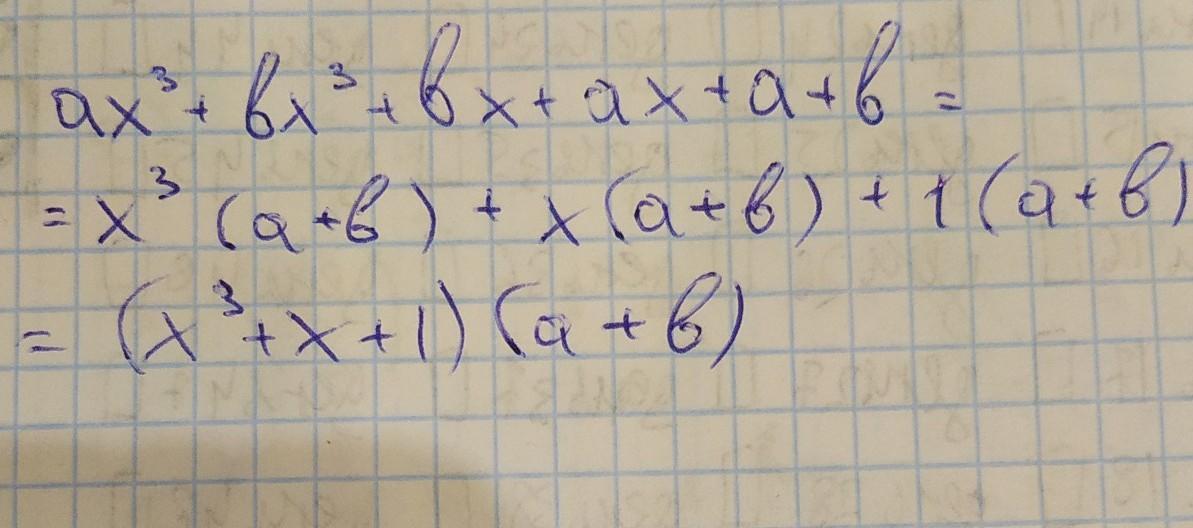 ax³ + bx³ + bx + ax + a + b =
= x³ (a + b) + x (a + b) + 1 (a + b)
= (x³ + x + 1) (a + b)